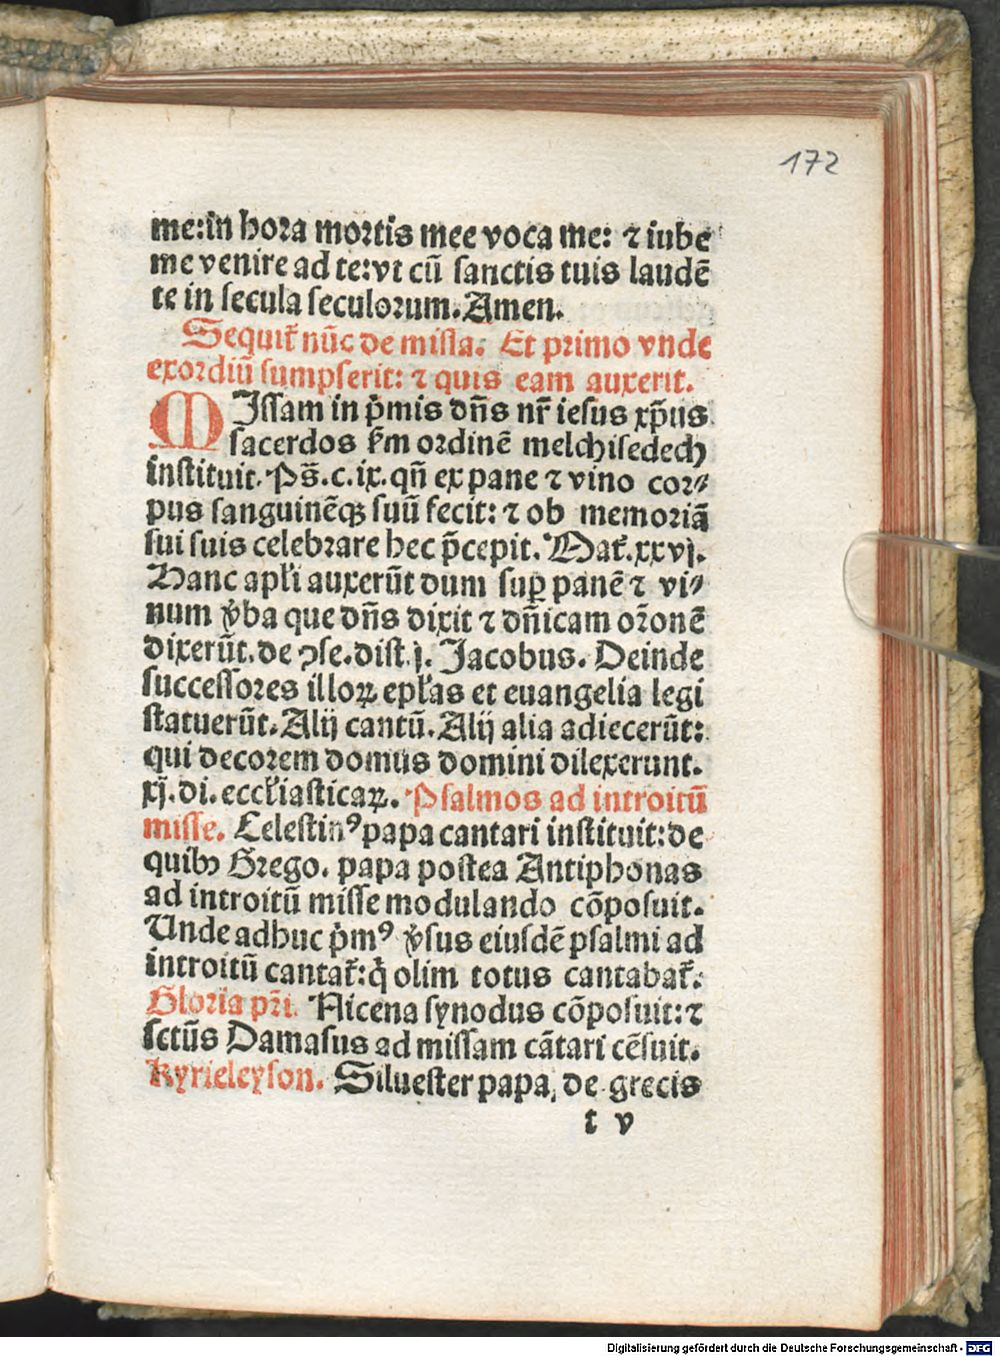 172
me:in hora mortis mee voca me: ⁊ iube
me venire ad te:vt cū sanctis tuis laudē
te in secula seculorum.Amen.
Sequit᷑ nūc de missa. Et primo vnde
exordiū sumpserit: ⁊ quis eam auxerit.
MIssam in p̄mis dn̄s nr̄ iesus xp̄us
sacerdos ẜm ordinē melchisedech
instituit. Ps̄.c.ix. qn̄ ex pane ⁊ vino cor⸗
pus sanguinēqꝫ suū fecit: ⁊ ob memoriā
sui suis celebrare hec p̄cepit. Mat᷑.xxvj.
Hanc apl̄i auxerūt dum suꝑ panē ⁊ vi⸗
num v̓ba que dn̄s dixit ⁊ dn̄icam or̄onē
dixerūt.de ꝯse.dist.j. Jacobus. Deinde
successores illoꝝ epl̄as et euangelia legi
statuerūt.Alij cantū.Alij alia adiecerūt:
qui decorem domus domini dilexerunt.
xj.di.eccl̄iasticaꝝ. Psalmos ad introitū
misse. Celestinꝰ papa cantari instituit:de
quibꝫ Grego. papa postea Antiphonas
ad introitū misse modulando cōposuit.
Unde adhuc p̓mꝰ v̓sus eiusdē psalmi ad
introitū cantat᷑:q̓ olim totus cantabat᷑:
Gloria pr̄i. Nicena synodus cōposuit:⁊
sctūs Damasus ad missam cātari cēsuit.
Kyrieleyson. Siluester papa, de grecis
t v
Digitalisierung gefördert durch die Deutsche Forschungsgemeinschaft - DFG